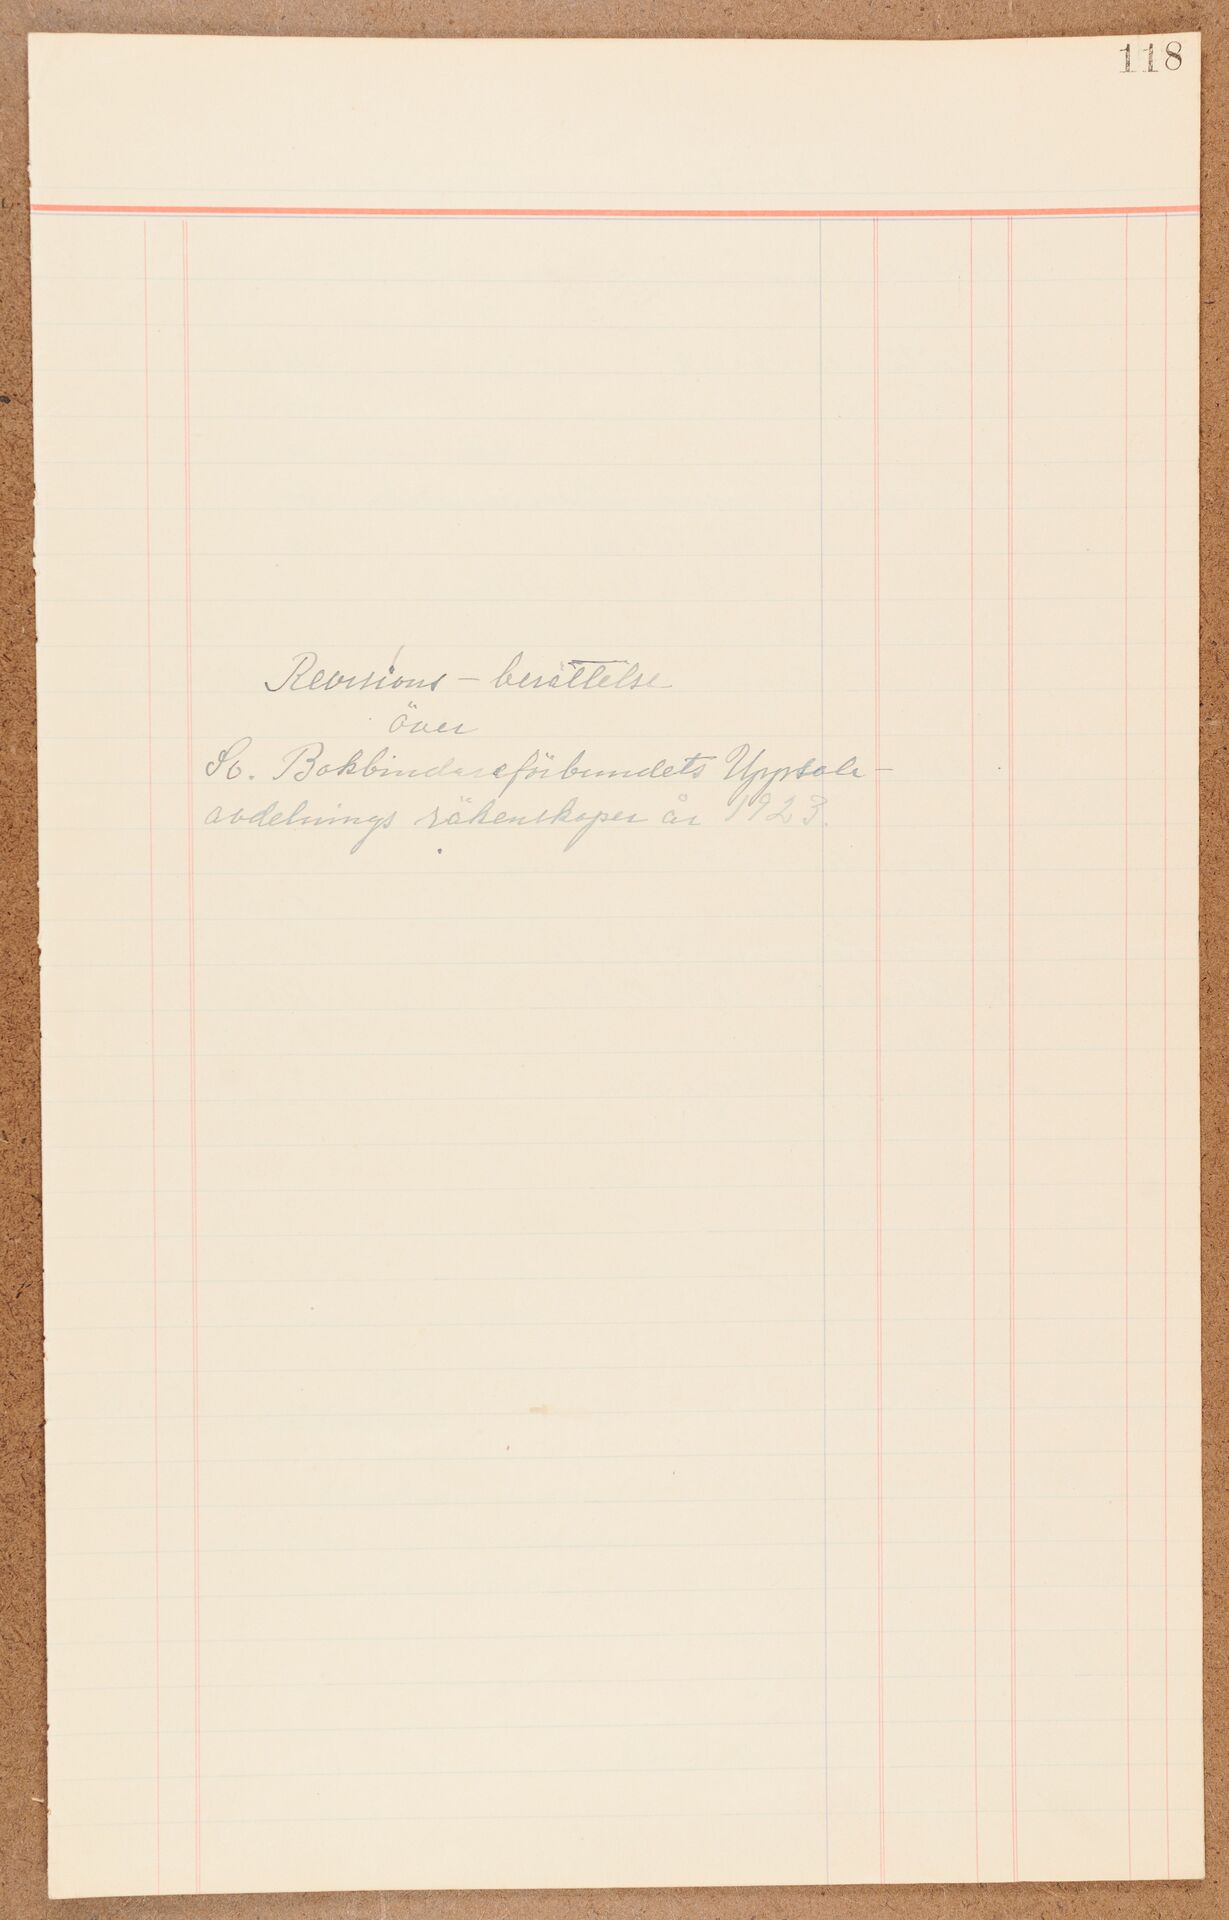 118
Revisions - berättelse
över
Sv. Bokbindareförbundets Uppsala-
avdelnings räkenskaper år 1923.